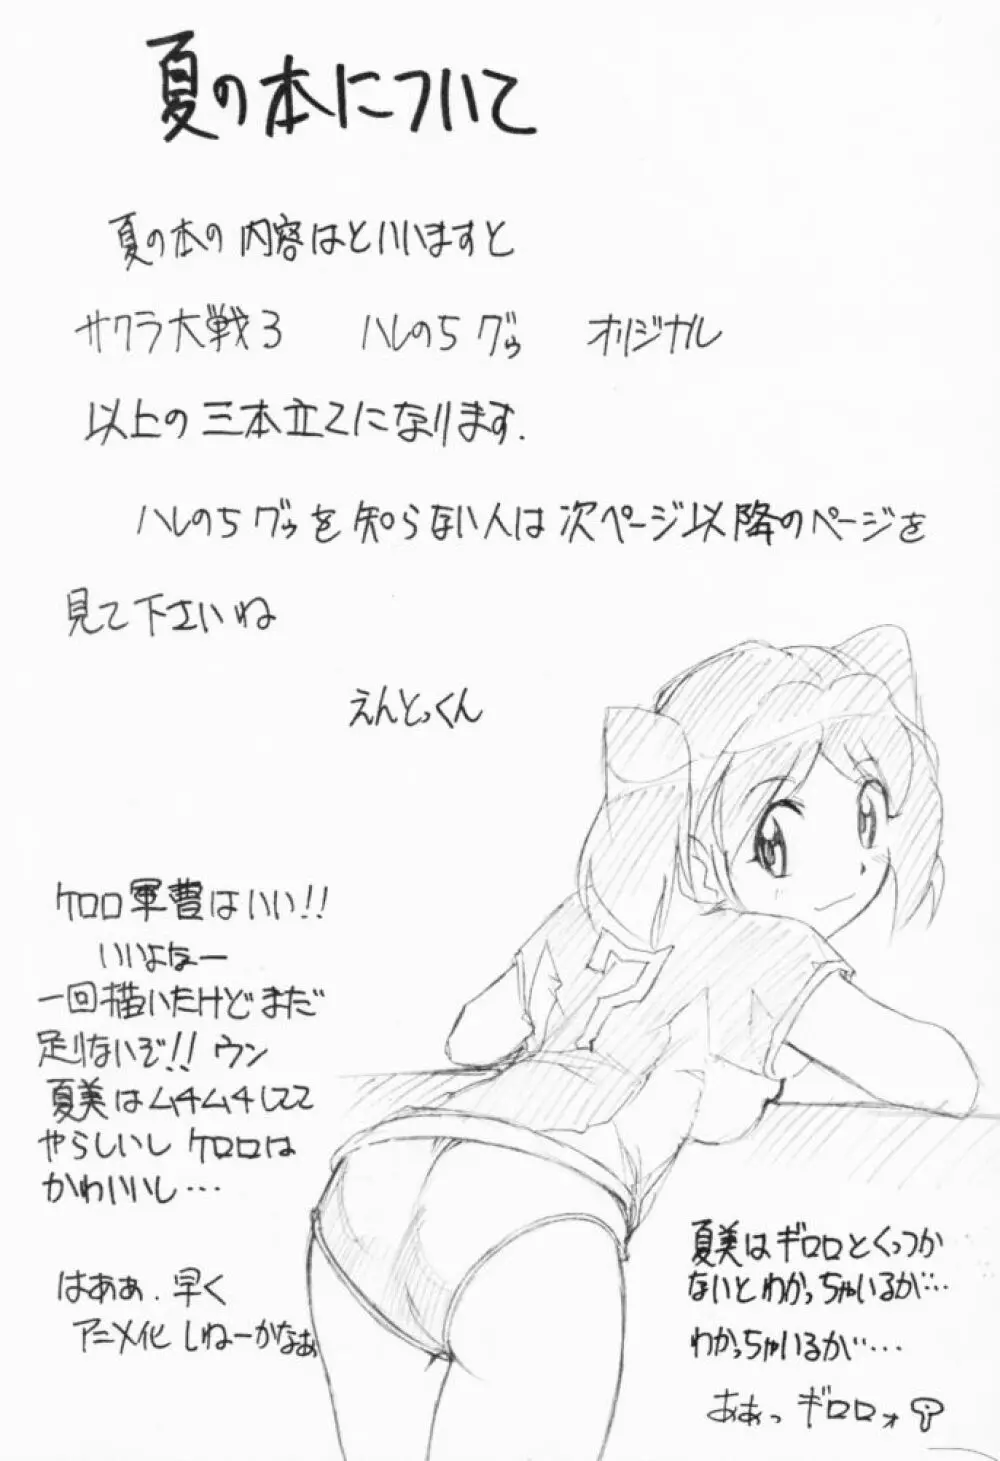 夏の本について
夏の本の内容はといいますと
サクラ大戦3 ハレのちグゥ オリジナル
以上の三本立てになります.
ハレのちグゥを知らない人は次ページ以降のページを
見て下さいね
えんとっくん
ケロロ軍曹はいい!!
いいよなー
一回描いたけどまだ
足りないぞ!! ウン
夏美はムチムチしてて
やらしいし ケロロは
かわいいし…
はあぁ.早く
アニメ化しねーかなぁ
夏美はギロロとくっつか
ないとわかっちゃいるが…
わかっちゃいるが…
ああっ ギロロォ